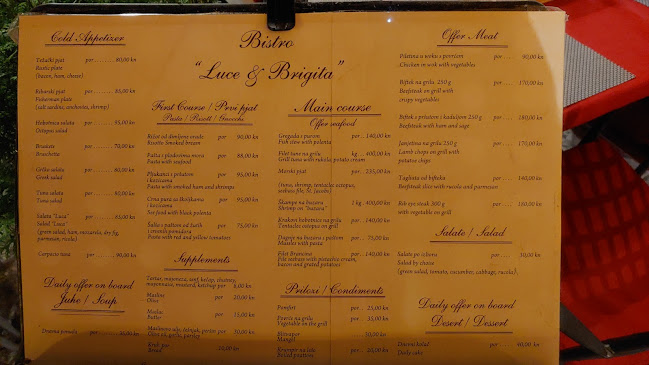 Cold Appetizer
Težački pjat por . . . . . . 80,00 kn
Rustic plate
(bacon, ham, cheese)
Ribarski pjat por . . . . . . 85,00 kn
Fisherman plate
(salt sardine, anchovies, shrimp)
Hobotnica salata por . . . . . . 95,00 kn
Octopus salad
Brusketa por . . . . . . 70,00 kn
Bruschetta
Grčka salata por . . . . . . 80,00 kn
Greek salad
Tuna salata por . . . . . . 90,00 kn
Tuna salad
Salata "Luca" por . . . . . . 85,00 kn
Salad "Luca"
(green salad, ham, mozzarella, dry fig,
parmesan, rucola)
Carpacio tuna por . . . . . . 90,00 kn
Daily offer on board
Juhe / Soup
Dnevna ponuda
Bistro
"Luce & Brigita"
First Course / Prvi pjat
Pasta / Rizoti / Gnocchi
Rižot od dimljene orade por 90,00 kn
Risotto Smoked bream
Pašta s plodovima mora por 88,00 kn
Pasta with seafood
Pljukanci s pršutom i por 95,00 kn
kozicama
Pasta with smoked ham and shrimps
Crna pura sa školjkama por 95,00 kn
i kozicama
Sea food with black polenta
Salša s paštom od žutih por 75,00 kn
i crvenih pomidora
Pasta with red and yellow tomatoes
Supplements
Tartar, majoneza, senf, kečap, chutney,
mayonnaise, mustard, ketchup por 6,00 kn
Masline por 20,00 kn
Olive
Maslac por 15,00 kn
Butter
Maslinovo ulje, češnjak, peršin por 30,00 kn
Olive oil, garlic, parsley
Kruh por
Bread
Main course
Offer seafood
Gregada s purom por . 140,00 kn
Fish stew with polenta
Filet tune na grilu kg . . 400,00 kn
Grill tuna with rukola, potato cream
Morski pjat por . 235,00 kn
(tuna, shrimp, tentacles octopus,
seabass file, St. Jacobs)
Škampe na buzaru 1 kg 400,00 kn
Shrimp on "buzara"
Krakovi hobotnice na grilu por . 140,00 kn
Tentacles octopus on grill
Dagnje na buzaru s paštom por . . 75,00 kn
Mussles with pasta
Filet Brancina por . 140,00 kn
File seebass with pistachio cream,
bacon and grated potatoes
Prilozi / Condements
Pomfrit por . . 25,00 kn
Povrće na grilu por . . 35,00 kn
Vegetable on the grill
Blitva por . . 30,00 kn
Mangel
Krumpir na lešo por . . 25,00 kn
Boiled potatoes
Offer Meat
Piletina u woku s povrćem por 90,00 kn
Chicken in wok with vegetables
Biftek na grilu 250 g por . . . 170,00 kn
Beefsteak on grill with
crispy vegetables
Biftek s pršutom i kaduljom 250 g por . . . 180,00 kn
Beefsteak with ham and sage
Janjetina na grilu 250 g por . . . 170,00 kn
Lamb chops on grill with
potatoe chips
Tagliata od bifteka por . . . 140,00 kn
Beefsteak slice with rucola and parmesan
Rib eye steak 300 g por . . . 160,00 kn
with vegetable on grill
Salate / Salad
Salate po izboru por . . . . 30,00 kn
Salads by choice
(green salad, tomato, cucumber, cabbage, rucola)
Daily offer on board
Desert / Dessert
Dnevni kolač por . . . . 40,00 kn
Daily cake